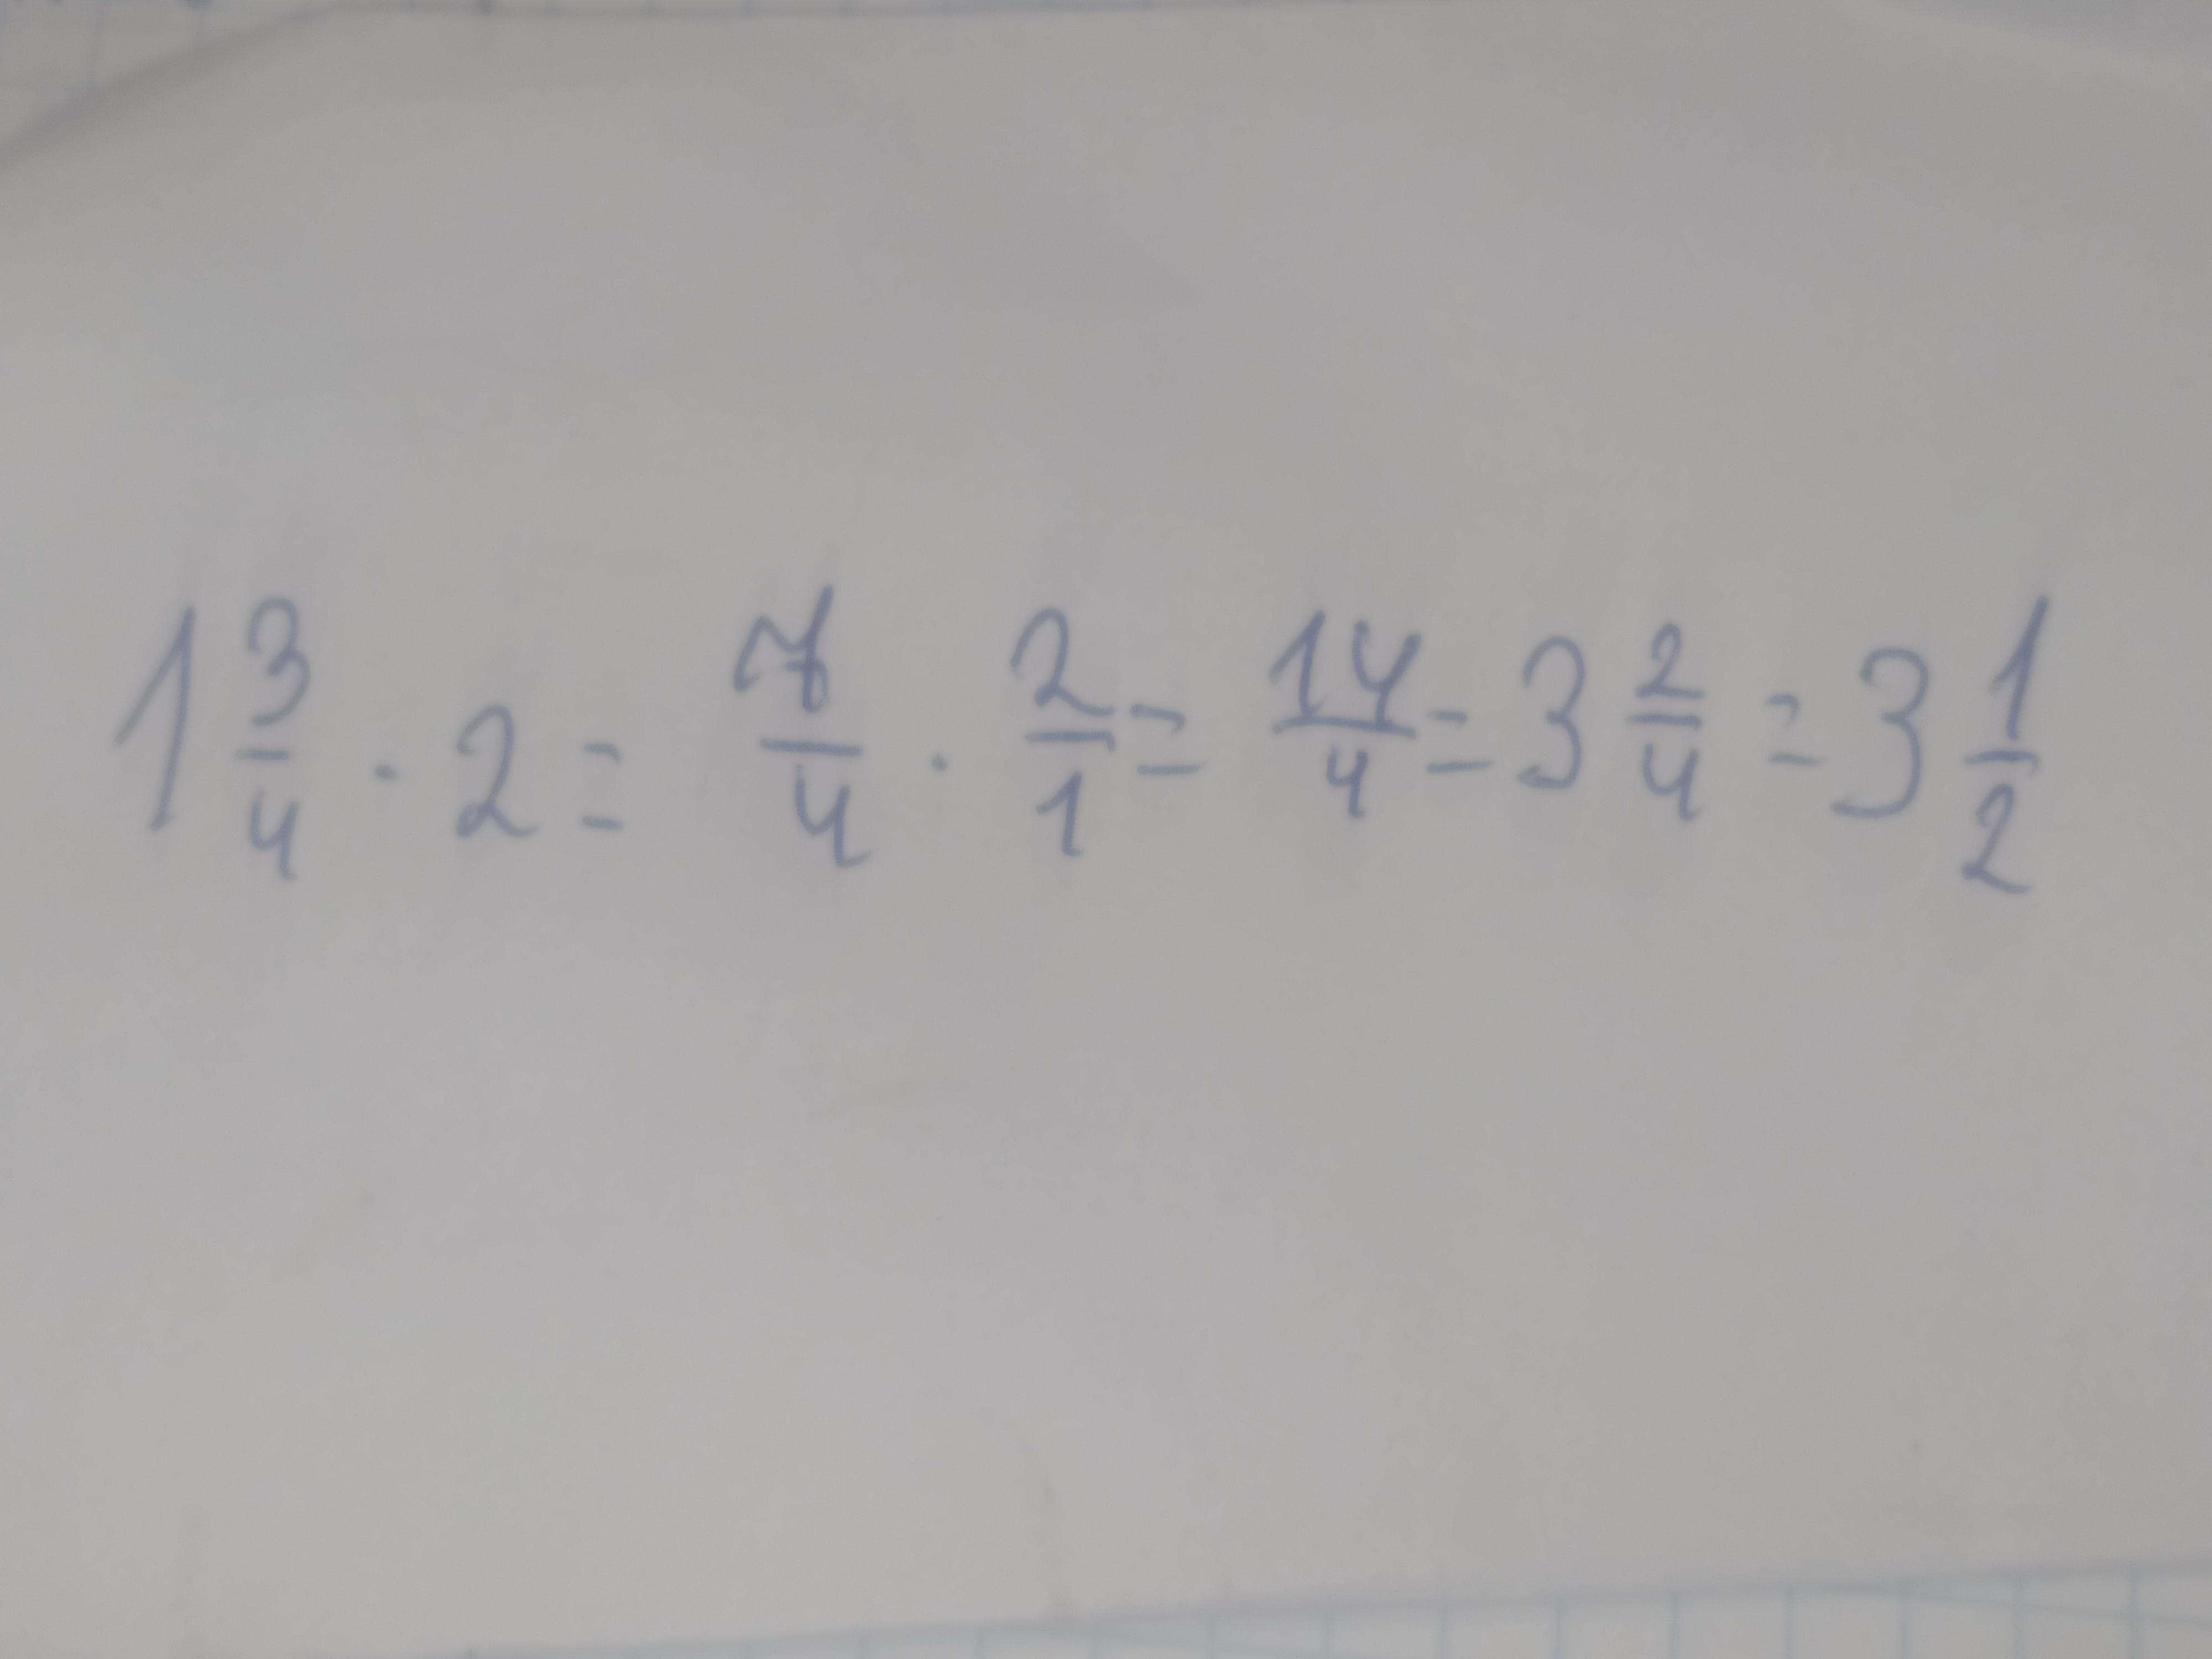 1 3/4 · 2 = 7/4 · 2/1 = 14/4 = 3 2/4 = 3 1/2